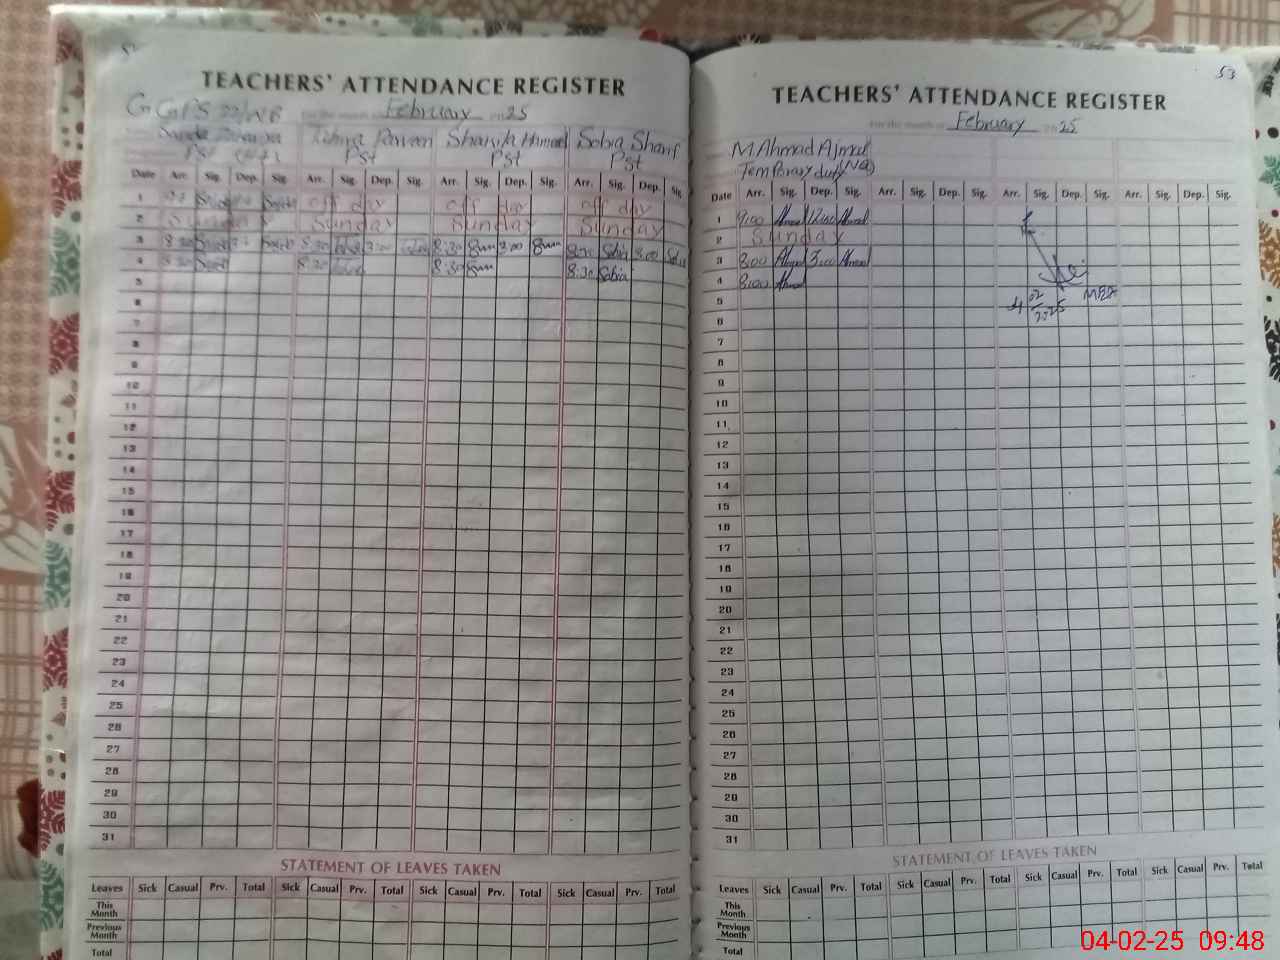 TEACHERS' ATTENDANCE REGISTER
For the month of February 2025
Rubina Parveen Shanila Ahmad Sobia Sharif
Pst Pst Pst Pst
Date Arr. Sig. Dep. Sig. Arr. Sig. Dep. Sig. Arr. Sig. Dep. Sig. Arr. Sig. Dep. Sig
1 off day off day off day
2 Sunday Sunday Sunday Sunday
3 8:30 8:30 3:00 8:30 3:00 Sobia 3:00 Sobia
4 8:30 8:30 8:30 8:30 Sobia
5
6
7
8
9
10
11
12
13
14
15
16
17
18
19
20
21
22
23
24
25
26
27
28
29
30
31
STATEMENT OF LEAVES TAKEN
Leaves Sick Casual Prv. Total Sick Casual Prv. Total Sick Casual Prv. Total Sick Casual Prv. Total
This Month
Previous Month
Total
53
TEACHERS' ATTENDANCE REGISTER
For the month of February 2025
M Ahmad Ajmal
Temporary duty
Date Arr. Sig. Dep. Sig. Arr. Sig. Dep. Sig. Arr. Sig. Dep. Sig. Arr. Sig. Dep. Sig.
1 9:00 Ahmad 12:00 Ahmad
2 Sunday
3 8:00 Ahmad 3:00 Ahmad
4 8:00 Ahmad
5 4/02/2025 MEA
6
7
8
9
10
11
12
13
14
15
16
17
18
19
20
21
22
23
24
25
26
27
28
29
30
31
STATEMENT OF LEAVES TAKEN
Leaves Sick Casual Prv. Total Sick Casual Prv. Total Sick Casual Prv. Total Sick Casual Prv. Total
This Month
Previous Month
Total
04-02-25 09:48